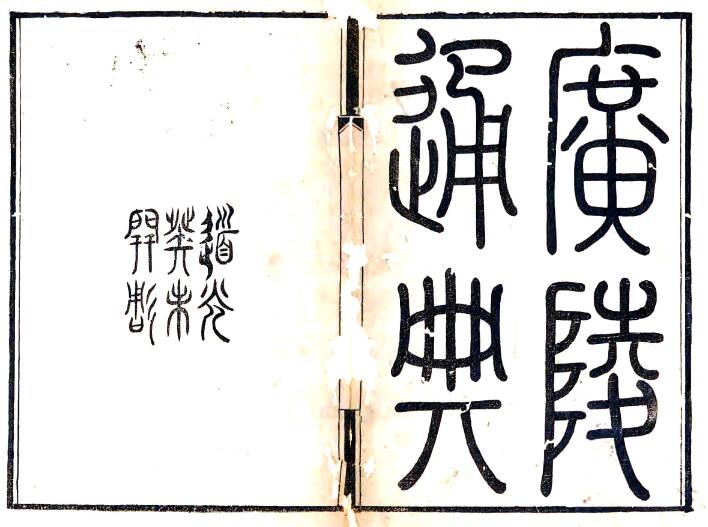 廣陵
通典
道光
癸未
開雕